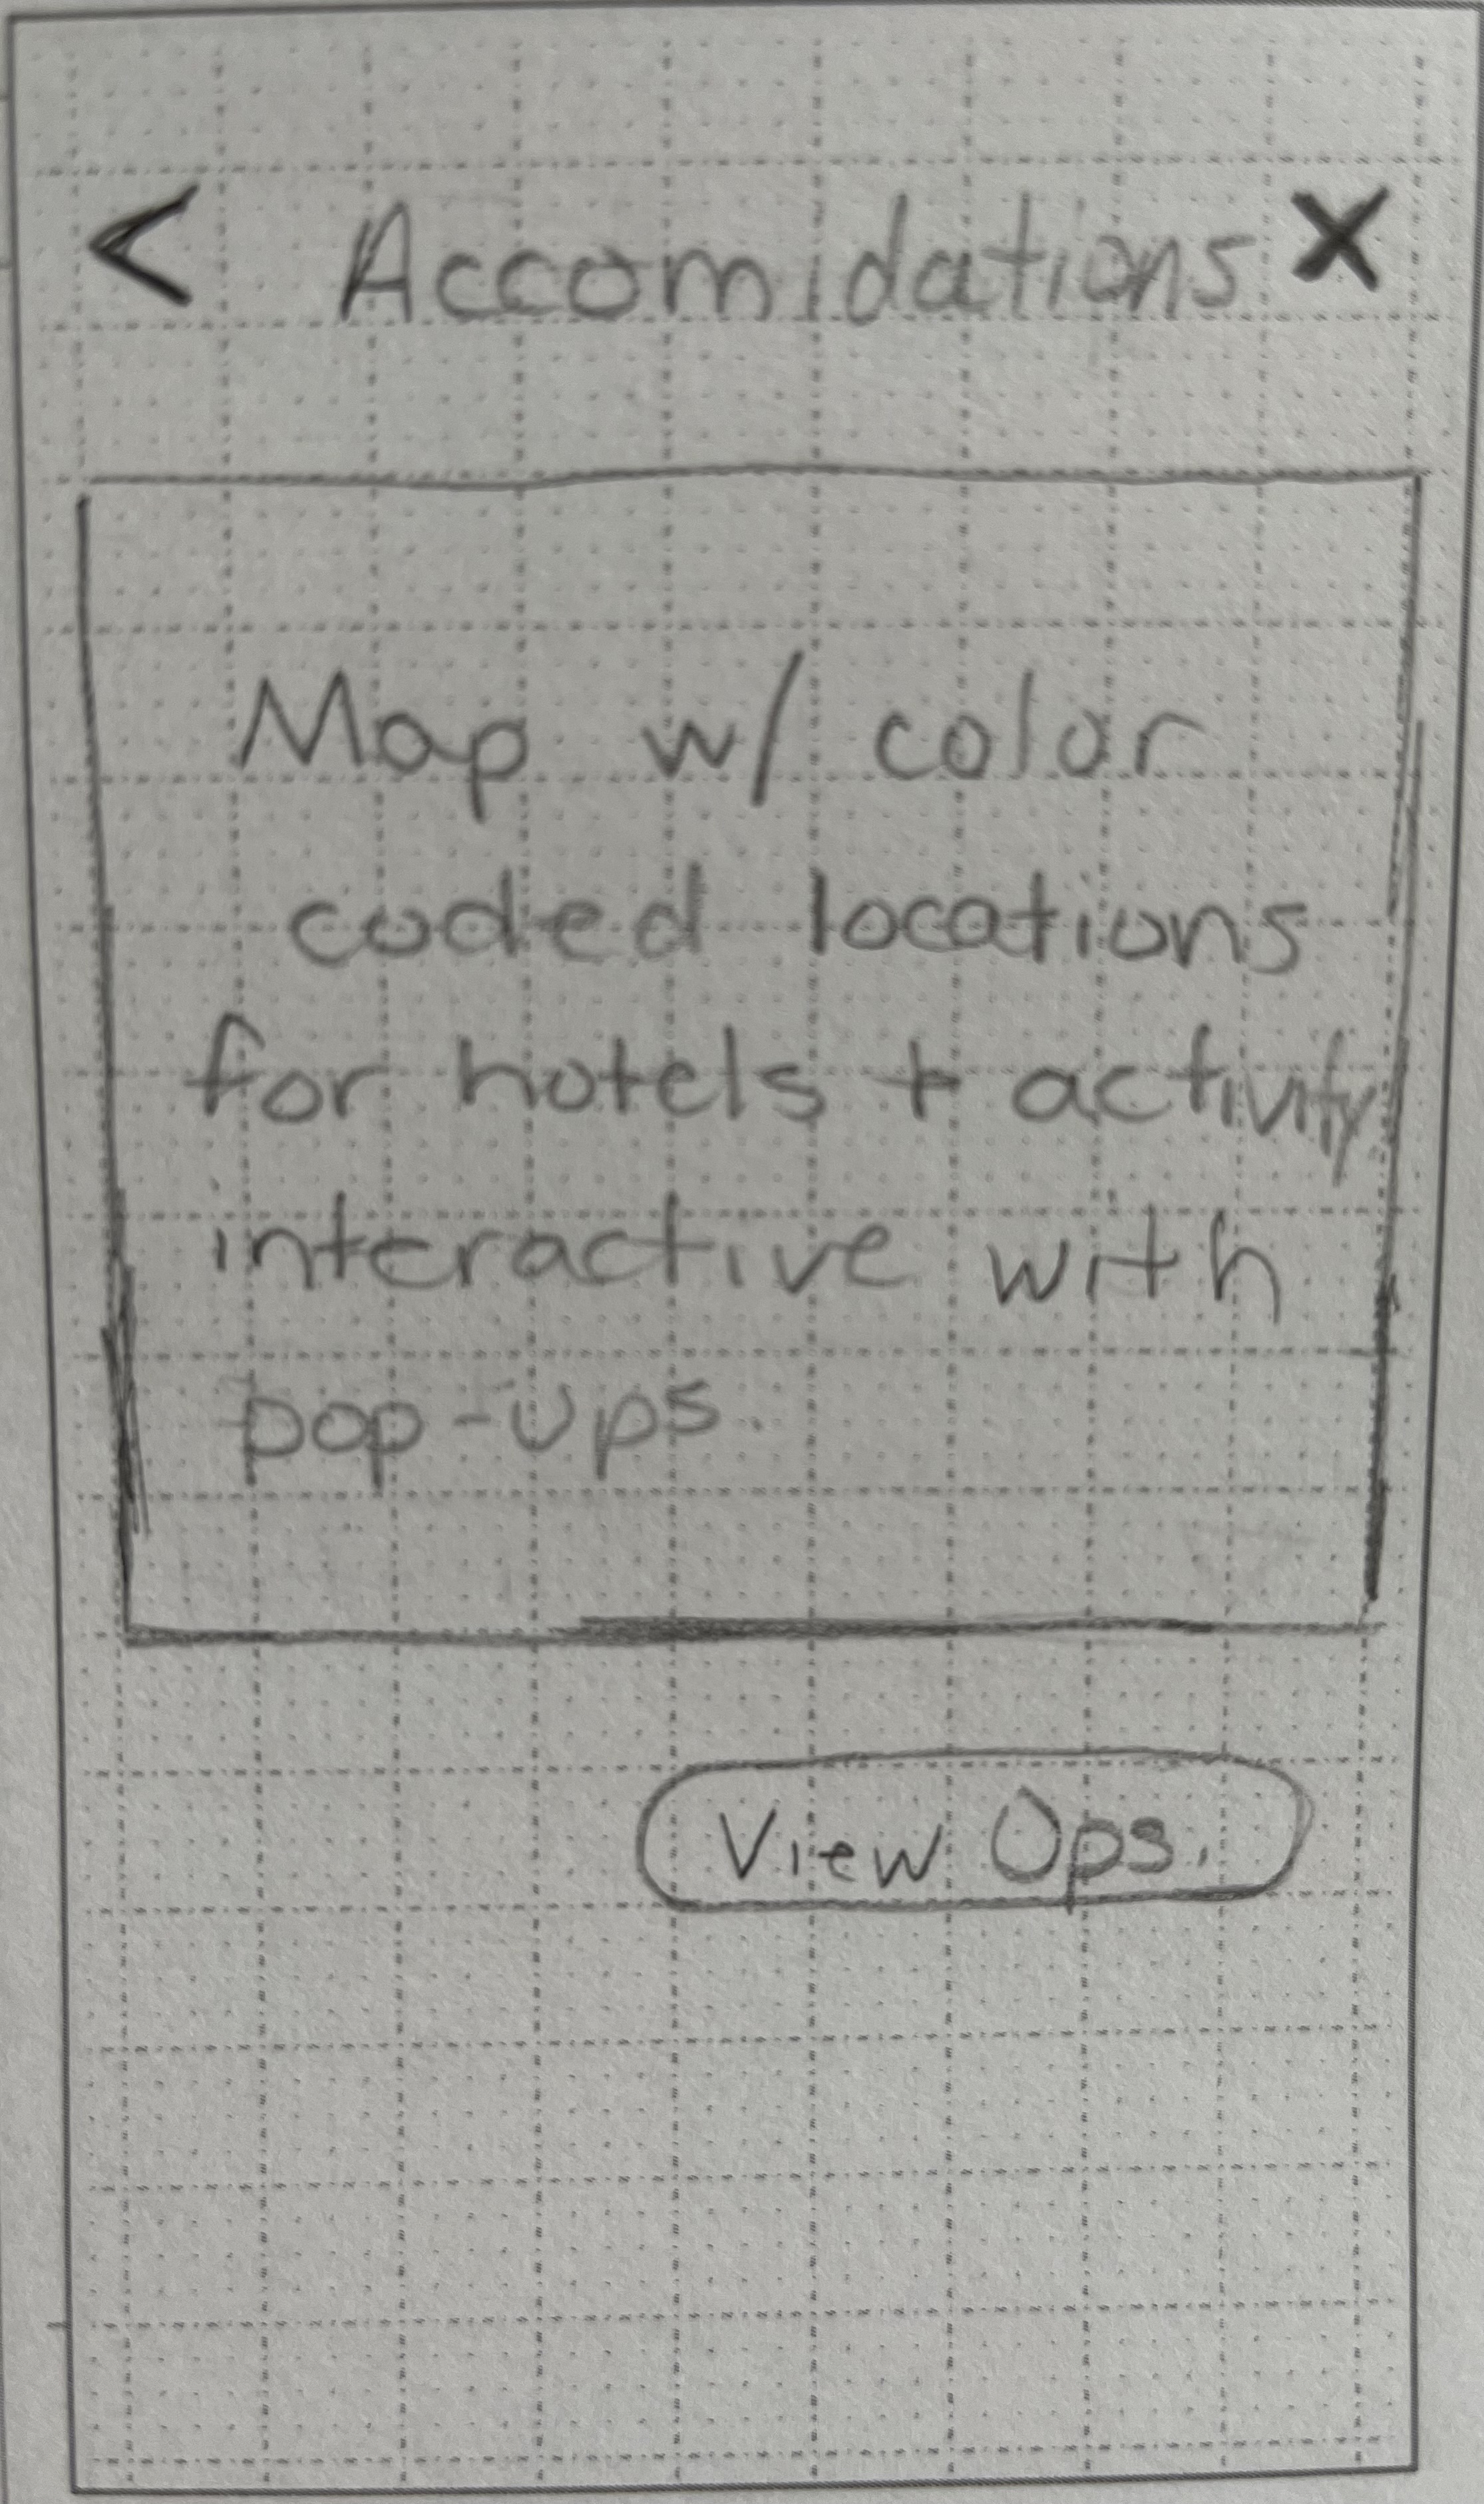 < Accomidations X
Map w/ color
coded locations
for hotels + activity
interactive with
pop-ups.
View Ops.